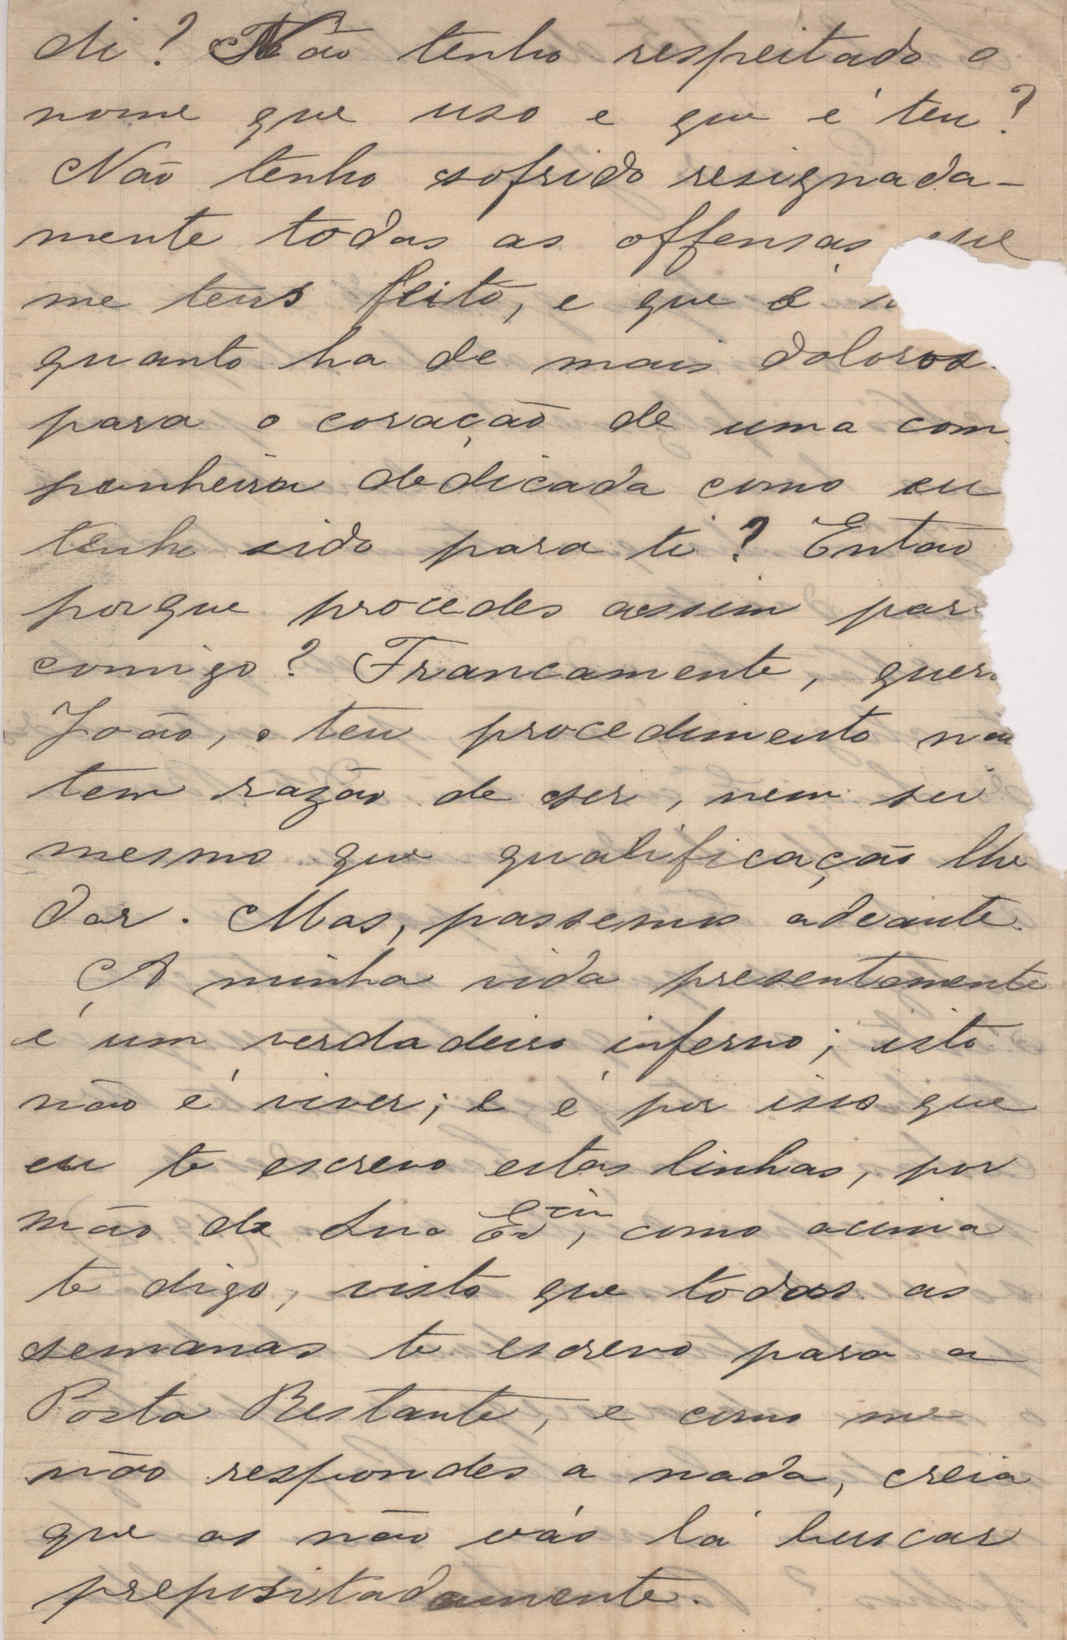 di? Não tenho respeitado o
nome que uso e que é teu?
Não tenho sofrido resignada-
mente todas as offensas que
me tens feito, e que é
quanto ha de mais doloros
para o coração de uma com
panheira dedicada como eu
tenho sido para ti? Então
porque procedes assim par
comigo? Francamente, quer
João, o teu procedimento não
tem razão de ser, nem sei
mesmo que qualificação lhe
dar. Mas, passemos adeante.
A minha vida presentemente
é um verdadeiro inferno; isto
não é viver; e é por isso que
eu te escrevo estas linhas, por
mão de Sua Ex.cia, como acima
te digo, visto que todas as
semanas te escrevo para a
Posta Restante, e como me
não respondes a nada, creio
que as não vás lá buscar
prepositadamente.